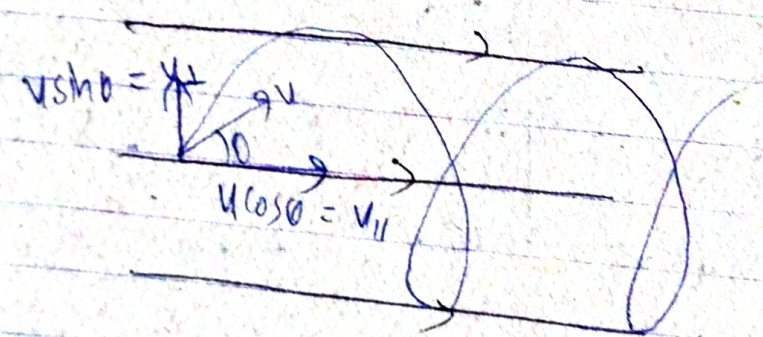 v sinθ = v⊥
v
θ
v cosθ = v||